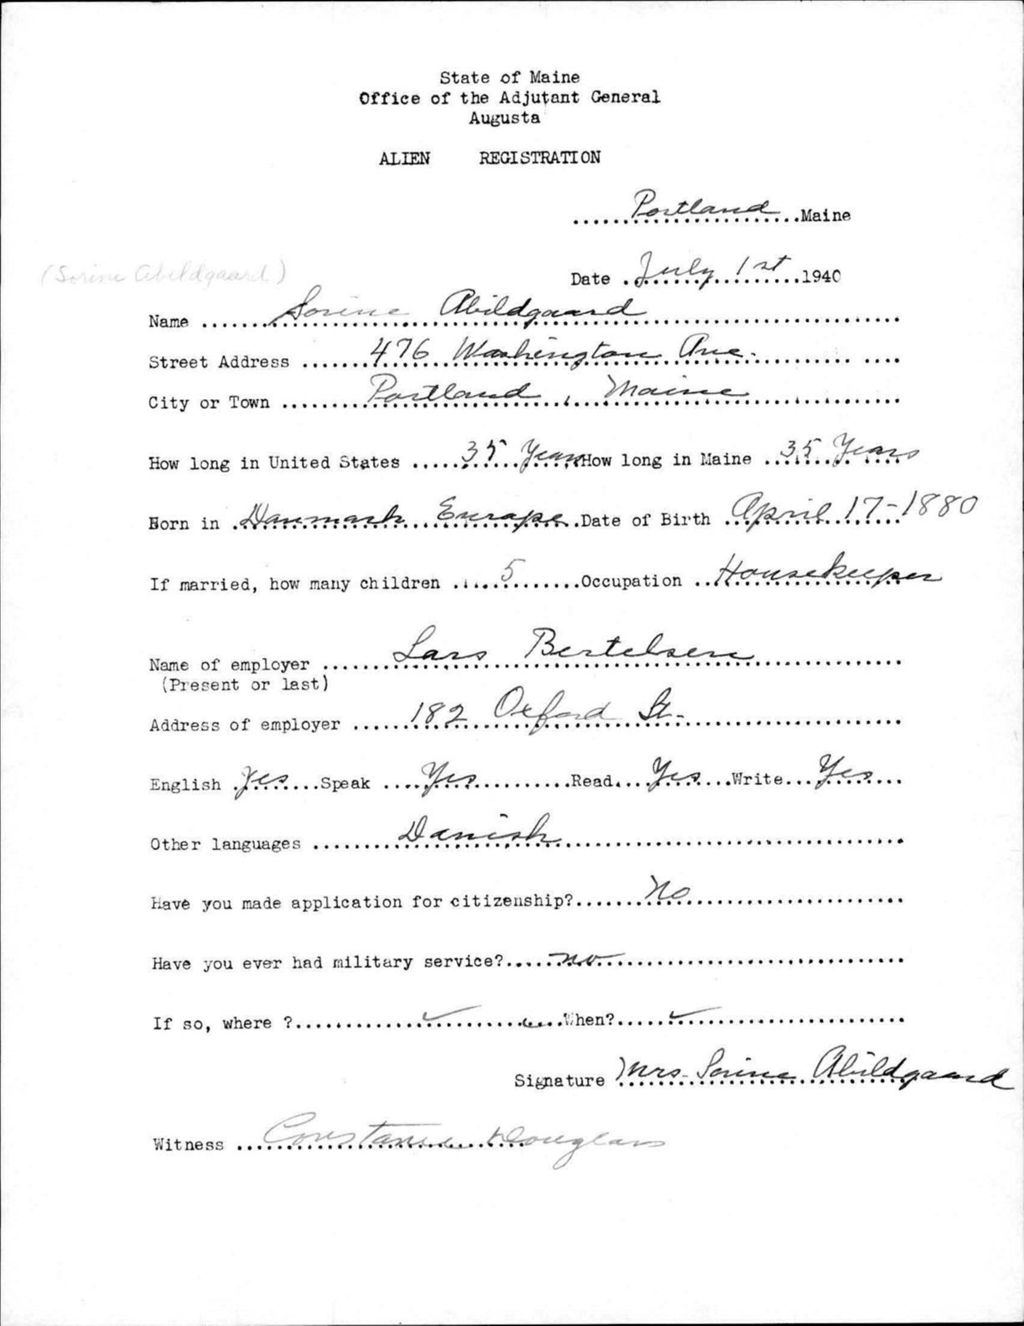 State of Maine
Office of the Adjutant General
Augusta
ALIEN REGISTRATION
......Portland......Maine
(Sorine Abildgaard)
Date .July 1st.1940
Name ......Sorine Abildgaard......
Street Address ......476 Washington Ave.......
City or Town ......Portland, Maine......
How long in United States .....35 Years How long in Maine ..35 Years
Born in .Danmark Europe.Date of Birth ..April 17-1880
If married, how many children ......5......Occupation ..Housekeeper
Name of employer ......Lars Bertelsen......
(Present or last)
Address of employer ......182 Oxford St.......
English .Yes....Speak ....Yes..........Read....Yes....Write...Yes...
Other languages ......Danish......
Have you made application for citizenship?......No......
Have you ever had military service?......no......
If so, where ?......✓......When?......✓......
Signature Mrs. Sorine Abildgaard
Witness ......Constance Douglass